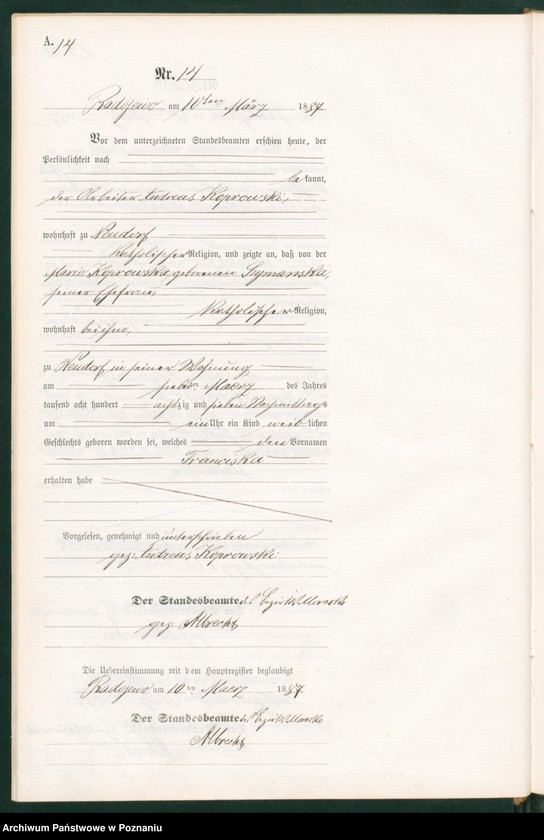 A. 14
Nr. 14
Radojewo am 10ten März 1887.
Vor dem unterzeichneten Standesbeamten erschien heute, der
Persönlichkeit nach
bekannt,
der Arbeiter Andreas Koprowski,
wohnhaft zu Neudorf
katholischer Religion, und zeigte an, daß von der
Maria Koprowska geborenen Szymanska,
seiner Ehefrau,
katholischer Religion,
wohnhaft bei ihm,
zu Neudorf in seiner Wohnung
am sieben ten Maerz des Jahres
tausend acht hundert achtzig und sieben Nachmittags
um ein Uhr ein Kind weiblichen
Geschlechts geboren worden sei, welches den Vornamen
Franciska
erhalten habe
Vorgelesen, genehmigt und unterschrieben
gez. Andreas Koprowski
Der Standesbeamte des
gez. Albrecht
Die Uebereinstimmung mit dem Hauptregister beglaubigt
Radojewo am 10ten Maerz 1887.
Der Standesbeamte des
Albrecht
Archiwum Państwowe w Poznaniu